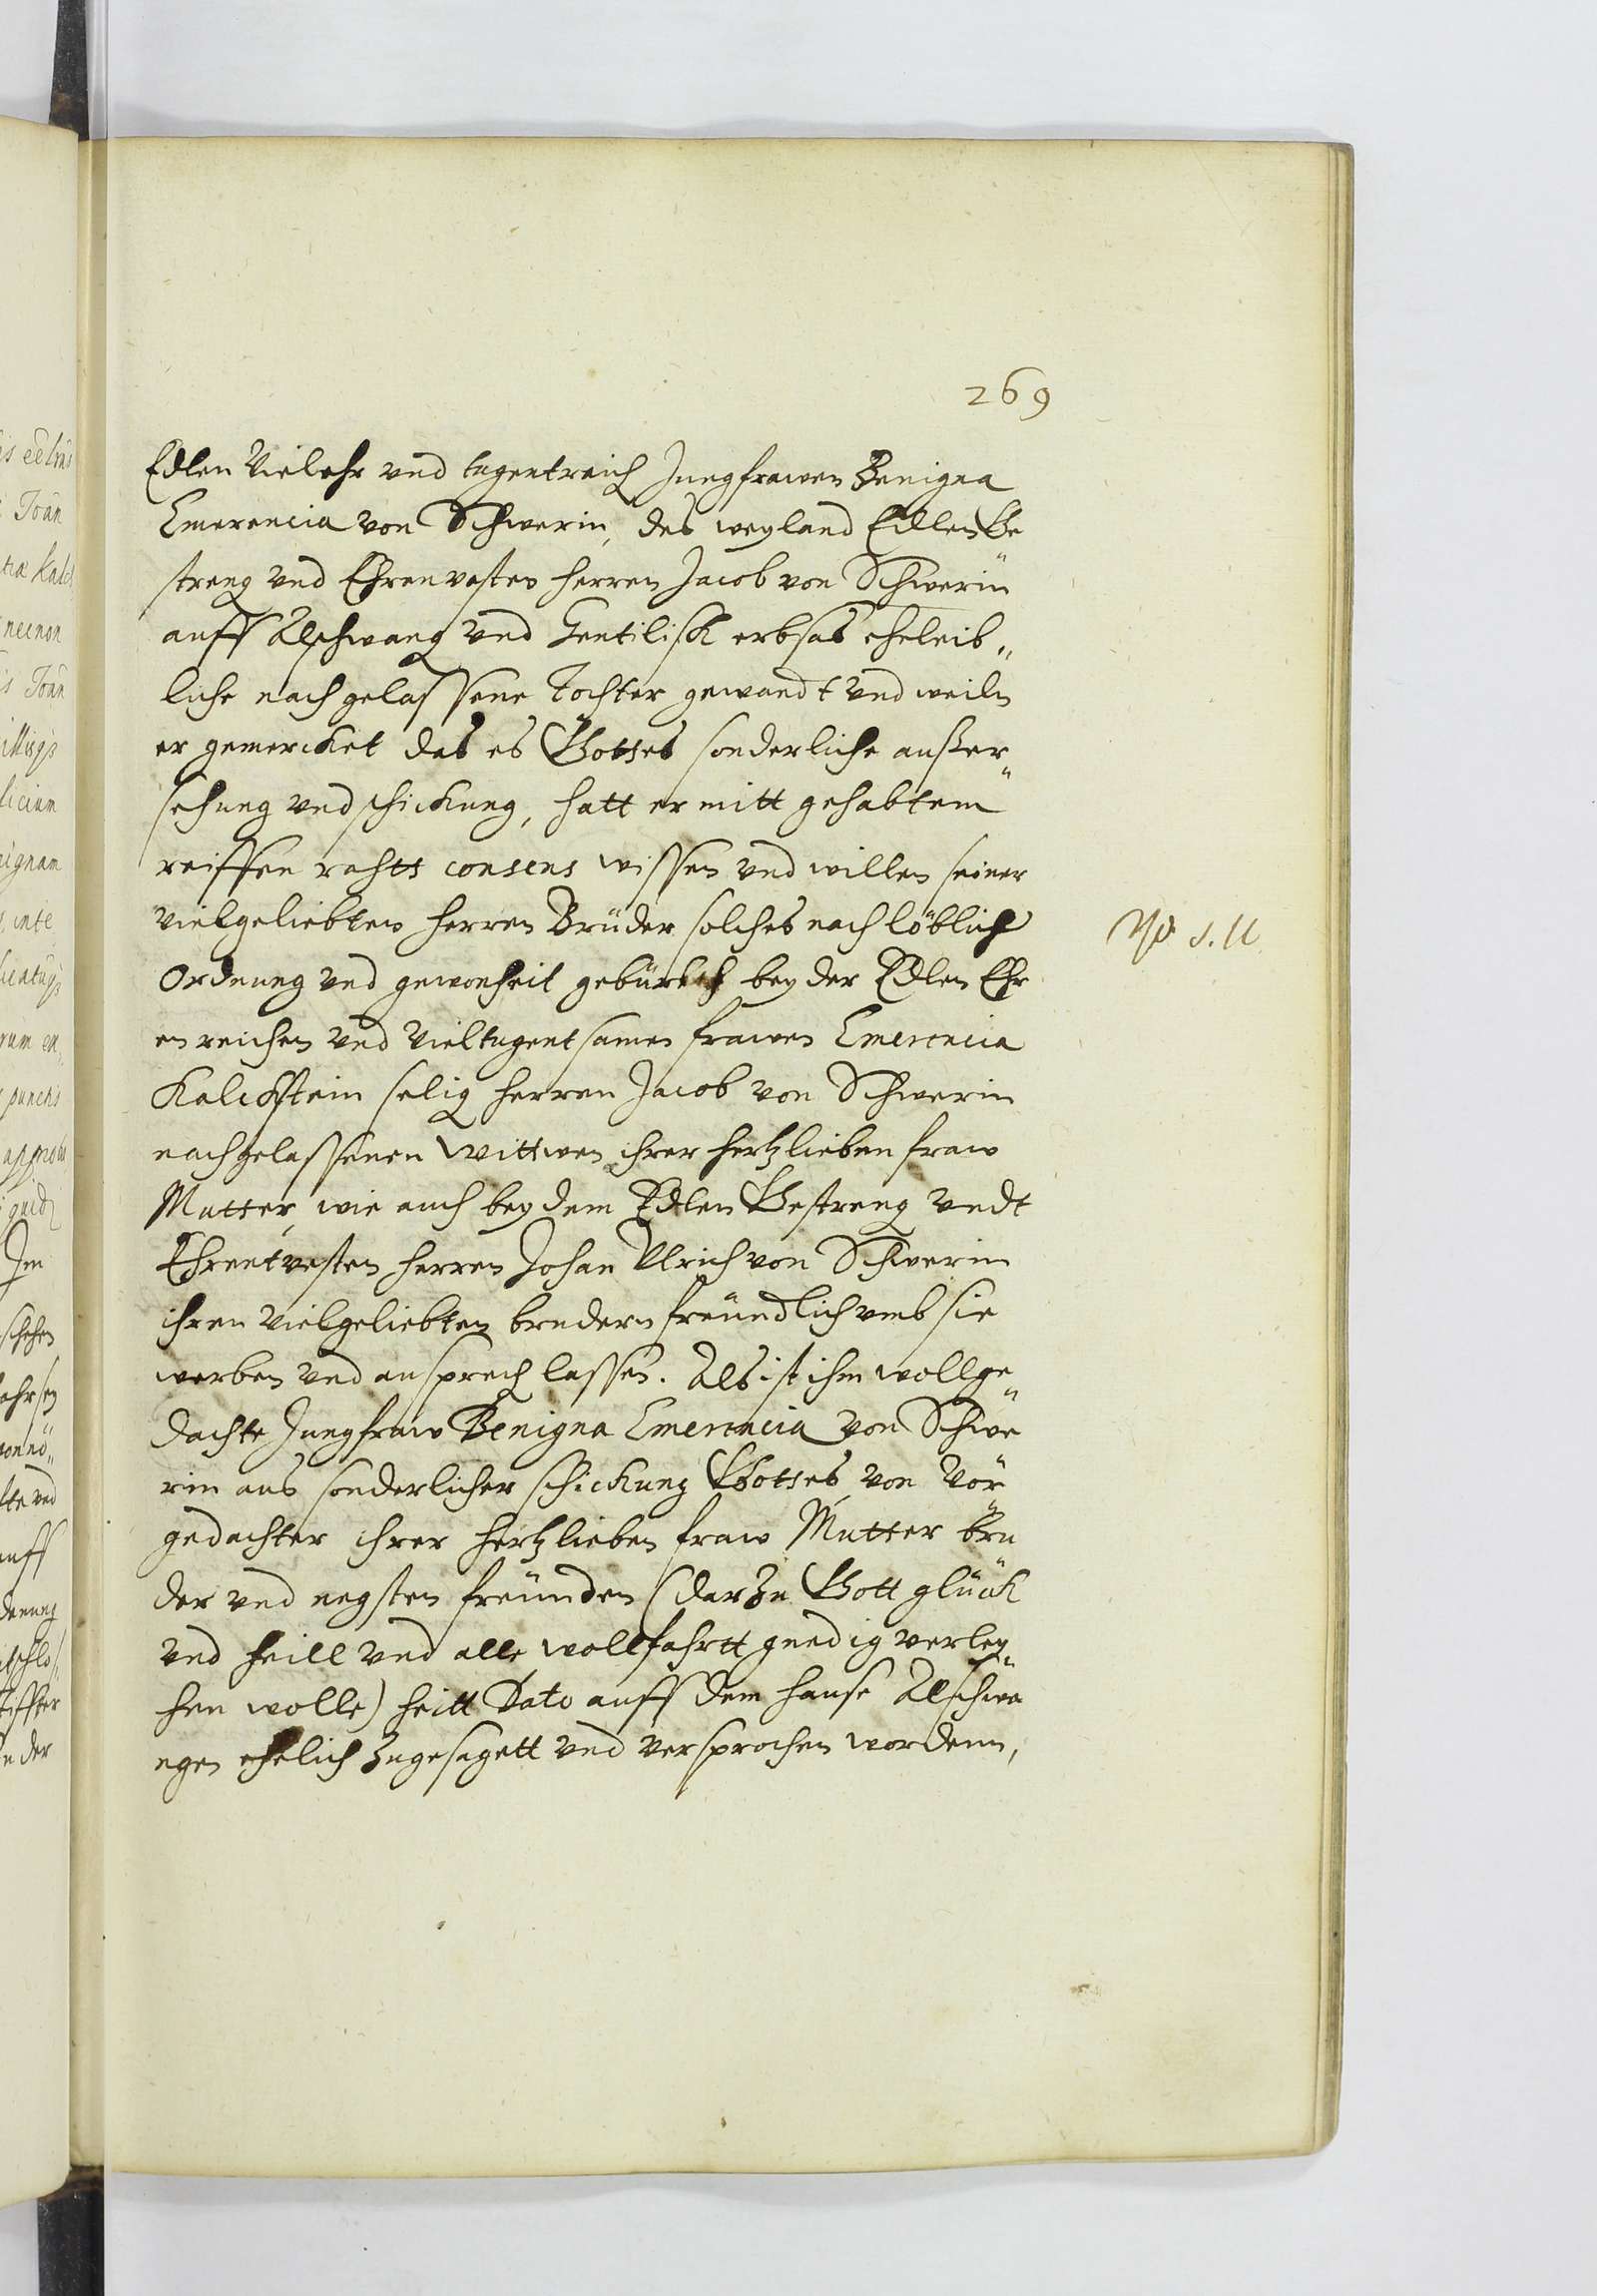 269
Edlen Vielehr vnd tugentreich Jungfrawen Benigna
Emerencia von Schwerin, des weyland Edlen Ge
streng vnd Ehrenvesten Herren Jacob von Schwerin
auff Alschwang vnd Gentilisch erbsas eheleib„
liche nachgelassene Tochter gewandt vnd weiln
er gemercket das es Gottes sonderliche außer„
sehung vnd schickung, hatt er mitt gehabtem
reiffen rahtt consens wissen vnd willen seiner
vielgeliebten Herren Brüder solches nach löblich
Ordnung vnd gewonheit gebürlich bey der Edlen Ehr
en reichen vnd Vieltugentsamen frawen Emerencia
Kalckstein selig Herren Jacob von Schwerin
nachgelassenen Wittwen ihrer hertzlieben fraw
Mutter, wie auch bey dem Edlen Gestreng vndt
Ehrentvesten Herren Johan Vlrich von Schwerin
ihren vielgeliebten brudern freündlich vmb sie
werben vnd ansprech lassen. Als ist ihm wollge„
dachte Jungfraw Benigna Emerencia von Schwe
rin aus sonderlicher schickung Gottes, von Vor
gedachter ihrer hertzlieben fraw Mutter bru
der vnd negsten freünden (darzu Gott glück
vnd heill vnd alle wollfahrtt gnedig verley„
hen wolle) heitt Dato auff dem hause Alschwa
ngen ehelich zugesagett vnd versprochen wordenn,